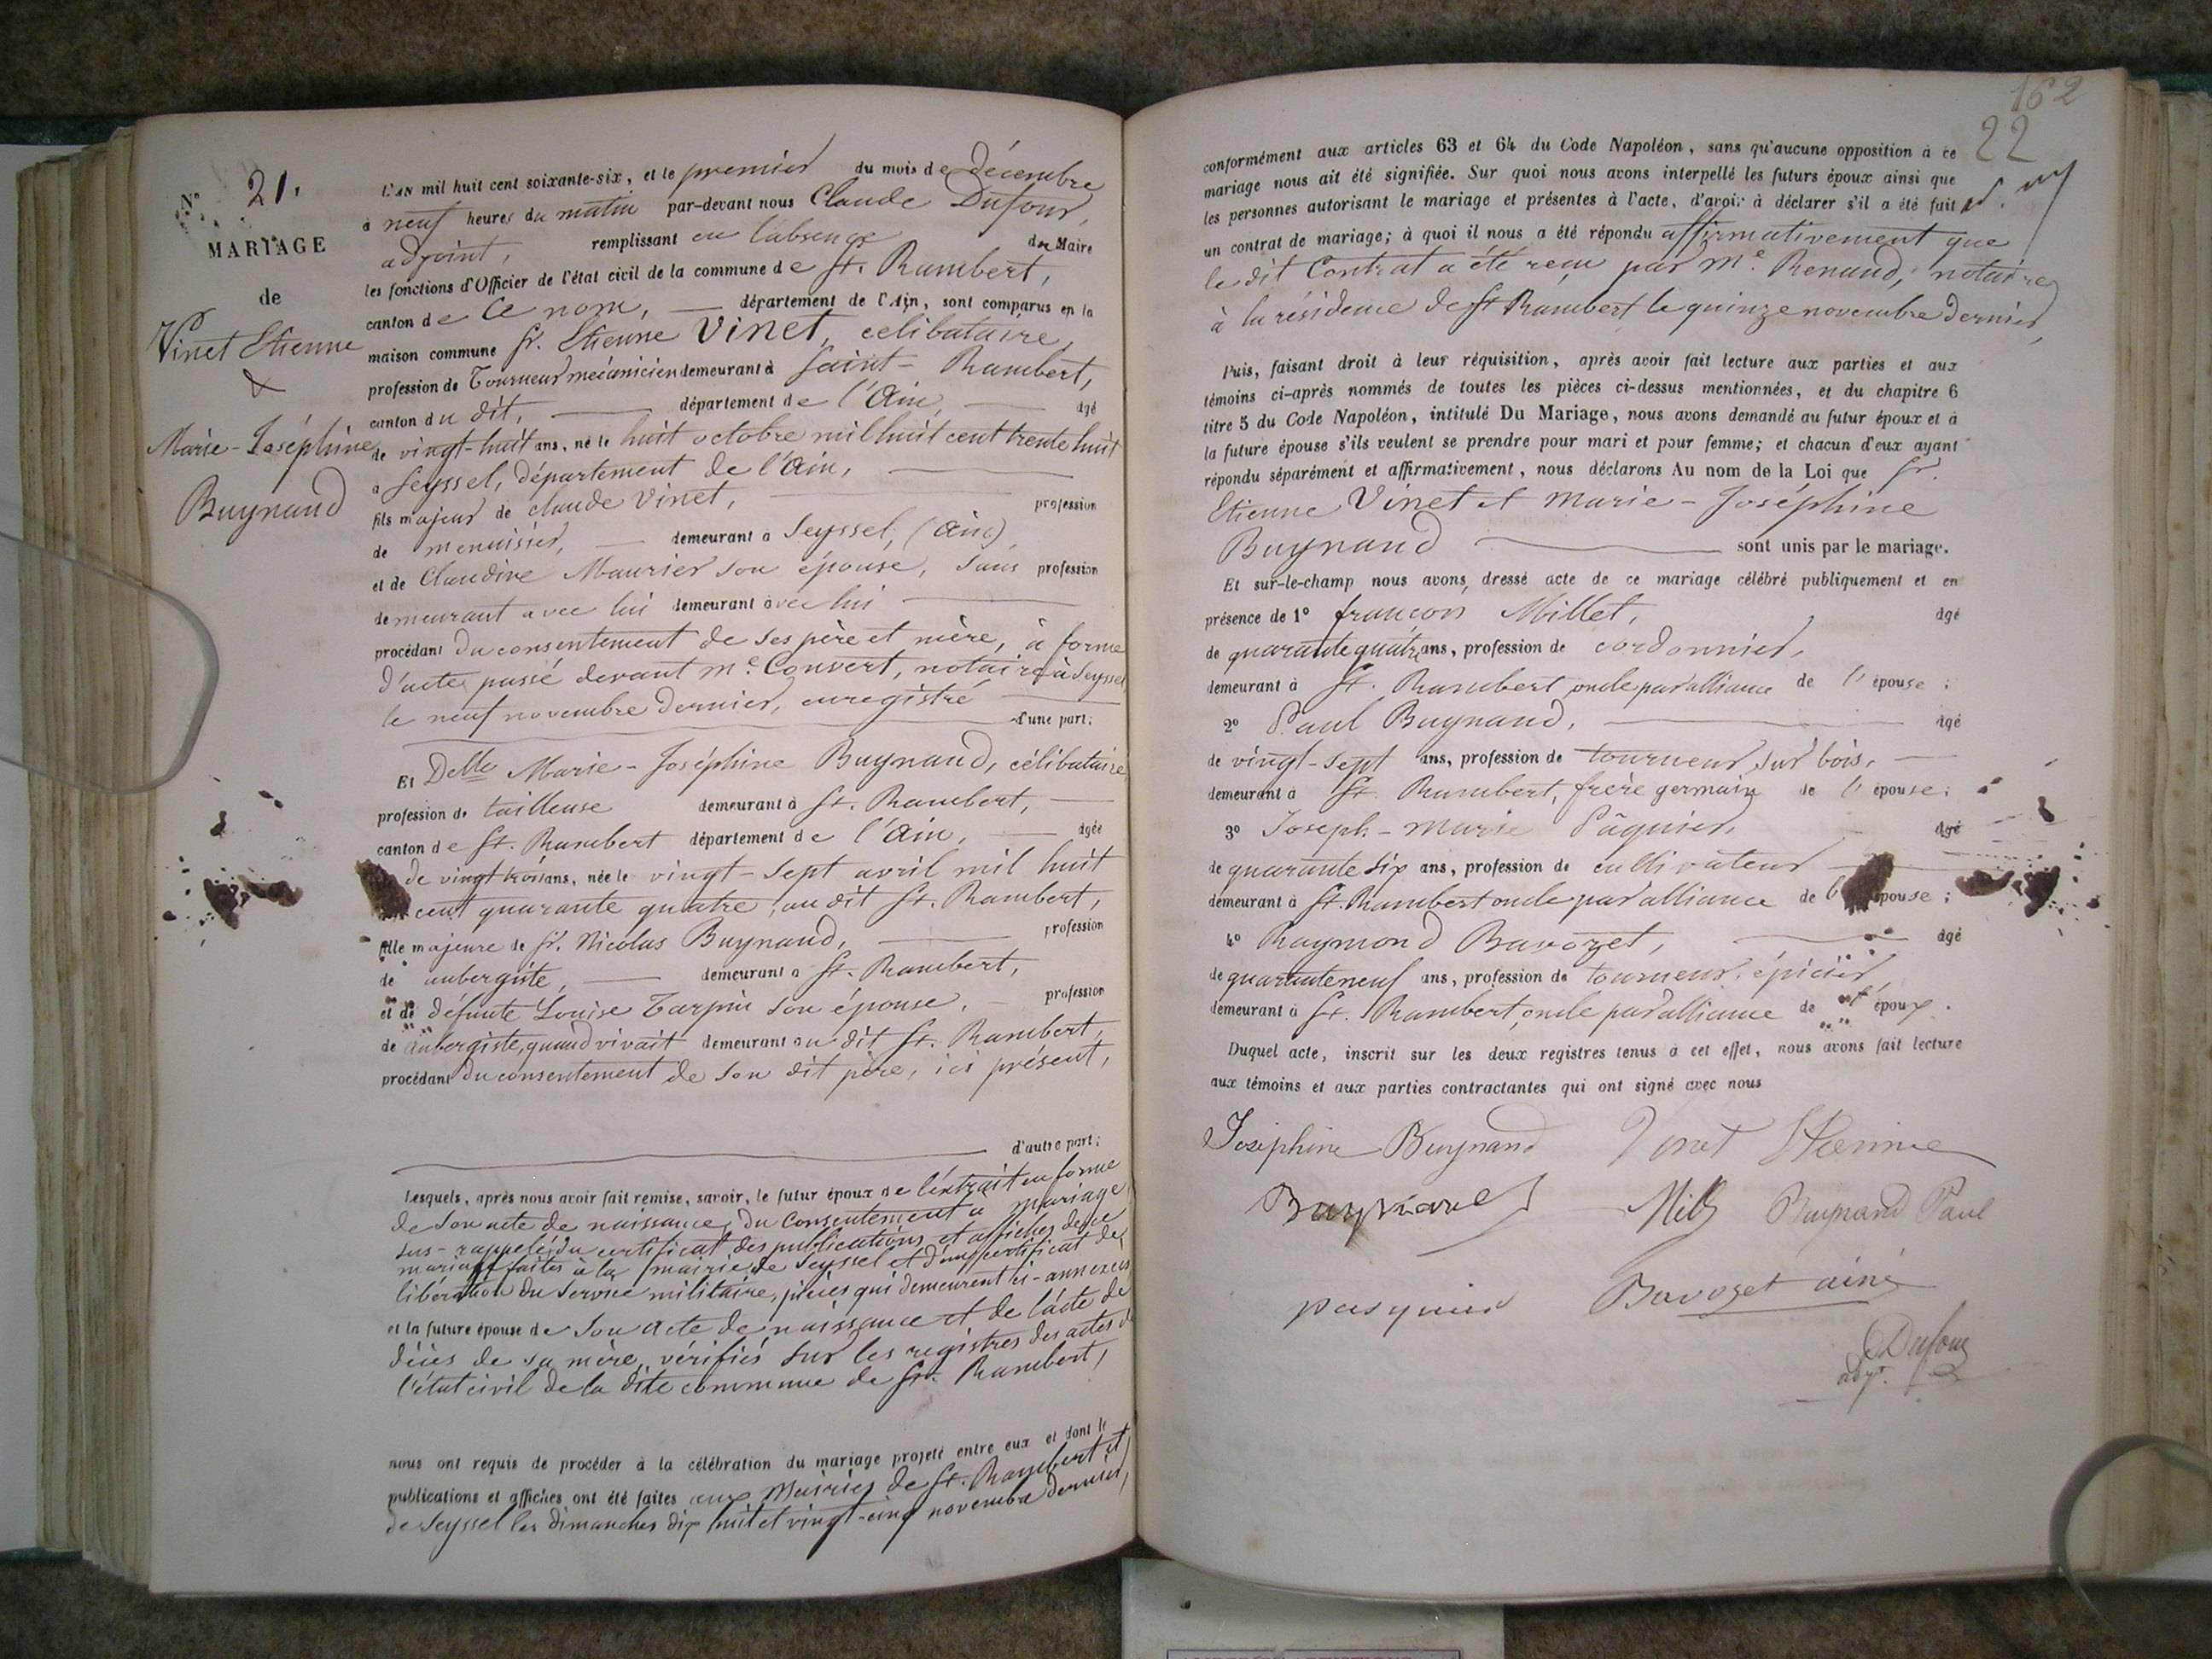 N° 21.
MARIAGE
de
Vinet Etienne
&
Marie-Joséphine
Buynand
L'AN mil huit cent soixante-six, et le premier du mois de décembre
à neuf heures du matin par-devant nous Claude Dufour,
adjoint, remplissant en l'absence du Maire
les fonctions d'Officier de l'état civil de la commune de St. Rambert,
canton de ce nom, département de l'Ain, sont comparus en la
maison commune Sr. Etienne Vinet, célibataire,
profession de Tourneur mécanicien demeurant à Saint-Rambert,
canton du dit, département de l'Ain, âgé
de vingt-huit ans, né le huit octobre mil huit cent trente huit
à Seyssel, département de l'Ain,
fils majeur de Claude Vinet, profession
de menuisier, demeurant à Seyssel, (Ain)
et de Claudine Maurier son épouse, sans profession
demeurant avec lui demeurant avec lui
procédant du consentement de ses père et mère, à forme
d'acte passé devant Me. Convert, notaire à Seyssel
le neuf novembre dernier, enregistré
d'une part;
Et Delle Marie-Joséphine Buynand, célibataire
profession de tailleuse demeurant à St. Rambert,
canton de St. Rambert département de l'Ain, âgée
de vingt trois ans, née le vingt-sept avril mil huit
cent quarante quatre, au dit St. Rambert,
fille majeure de Sr. Nicolas Buynand, profession
de aubergiste, demeurant à St. Rambert,
et de défunte Louise Tarpin son épouse, profession
de aubergiste, quand vivait demeurant au dit St. Rambert,
procédant du consentement de son dit père, ici présent,
d'autre part;
Lesquels, après nous avoir fait remise, savoir, le futur époux de l'extrait en forme
de son acte de naissance, du consentement à mariage
sus-rappelé, du certificat des publications et affiches de ce
mariage faites à la mairie de Seyssel et d'un certificat de
libération du service militaire, pièces qui demeurent ci-annexées
et la future épouse de son acte de naissance et de l'acte de
décès de sa mère, vérifiés sur les registres des actes de
l'état civil de la dite commune de St. Rambert,
nous ont requis de procéder à la célébration du mariage projeté entre eux et dont les
publications et affiches ont été faites aux Mairies de St. Rambert et
de Seyssel les dimanches dix huit et vingt-cinq novembre dernier,
162
22
conformément aux articles 63 et 64 du Code Napoléon, sans qu'aucune opposition à ce
mariage nous ait été signifiée. Sur quoi nous avons interpellé les futurs époux ainsi que
les personnes autorisant le mariage et présentes à l'acte, d'avoir à déclarer s'il a été fait
un contrat de mariage; à quoi il nous a été répondu affirmativement que
le dit Contrat a été reçu par Me. Renaud, notaire
à la résidence de St Rambert le quinze novembre dernier,
Puis, faisant droit à leur réquisition, après avoir fait lecture aux parties et aux
témoins ci-après nommés de toutes les pièces ci-dessus mentionnées, et du chapitre 6
titre 5 du Code Napoléon, intitulé Du Mariage, nous avons demandé au futur époux et à
la future épouse s'ils veulent se prendre pour mari et pour femme; et chacun d'eux ayant
répondu séparément et affirmativement, nous déclarons Au nom de la Loi que Sr.
Etienne Vinet et Marie-Joséphine
Buynand sont unis par le mariage.
Et sur-le-champ nous avons dressé acte de ce mariage célébré publiquement et en
présence de 1° françois Millet, âgé
de quarante quatre ans, profession de cordonnier,
demeurant à St. Rambert oncle par alliance de l'épouse;
2° Paul Buynand, âgé
de vingt-sept ans, profession de tourneur sur bois,
demeurant à St. Rambert, frère germain de l'épouse;
3° Joseph-Marie Pâquier, âgé
de quarante six ans, profession de cultivateur
demeurant à St Rambert oncle par alliance de l'épouse;
4° Raymond Bavozet, âgé
de quarante neuf ans, profession de tourneur, épicier
demeurant à St. Rambert, oncle par alliance de l'époux.
Duquel acte, inscrit sur les deux registres tenus à cet effet, nous avons fait lecture
aux témoins et aux parties contractantes qui ont signé avec nous
Joséphine Buynand Vinet Etienne
Buynand Buynand Paul
pasquier Bavozet ainé
Dufour
adjt.